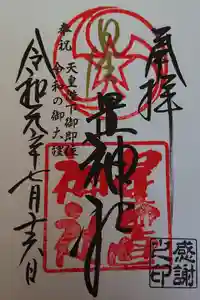 奉拝
星神社
奉祝
天皇陛下御即位
令和の御大禮
令和元年七月十六日
感謝
之印